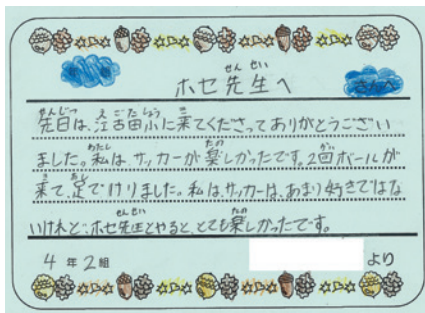 ホセ先生へ
先日は、江古田小に来てくださってありがとうござい
ました。私は、サッカーが楽しかったです。2回ボールが
来て、足でけりました。私は、サッカーは、あまり好きではな
いけれど、ホセ先生とやると、とても楽しかったです。
4年2組 より